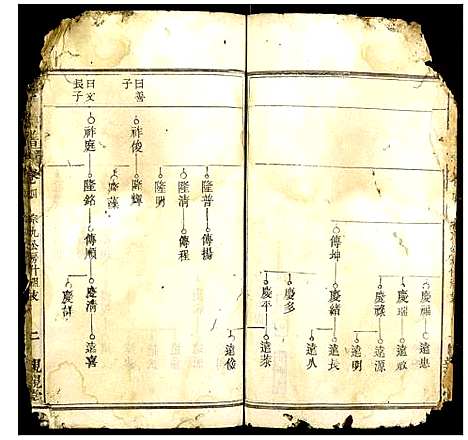 慶福
遠忠
慶瑞
遠啟
慶祿
遠源
遠明
傳坤
慶緒
遠長
遠八
慶多
慶平
遠茶
隆普
傳揚
遠儉
隆清
傳程
隆明
曰善子
祚俊
隆輝
慶藻
曰文長子
祚庭
隆銘
傳順
慶清
遠喜
慶詳
二
親親堂